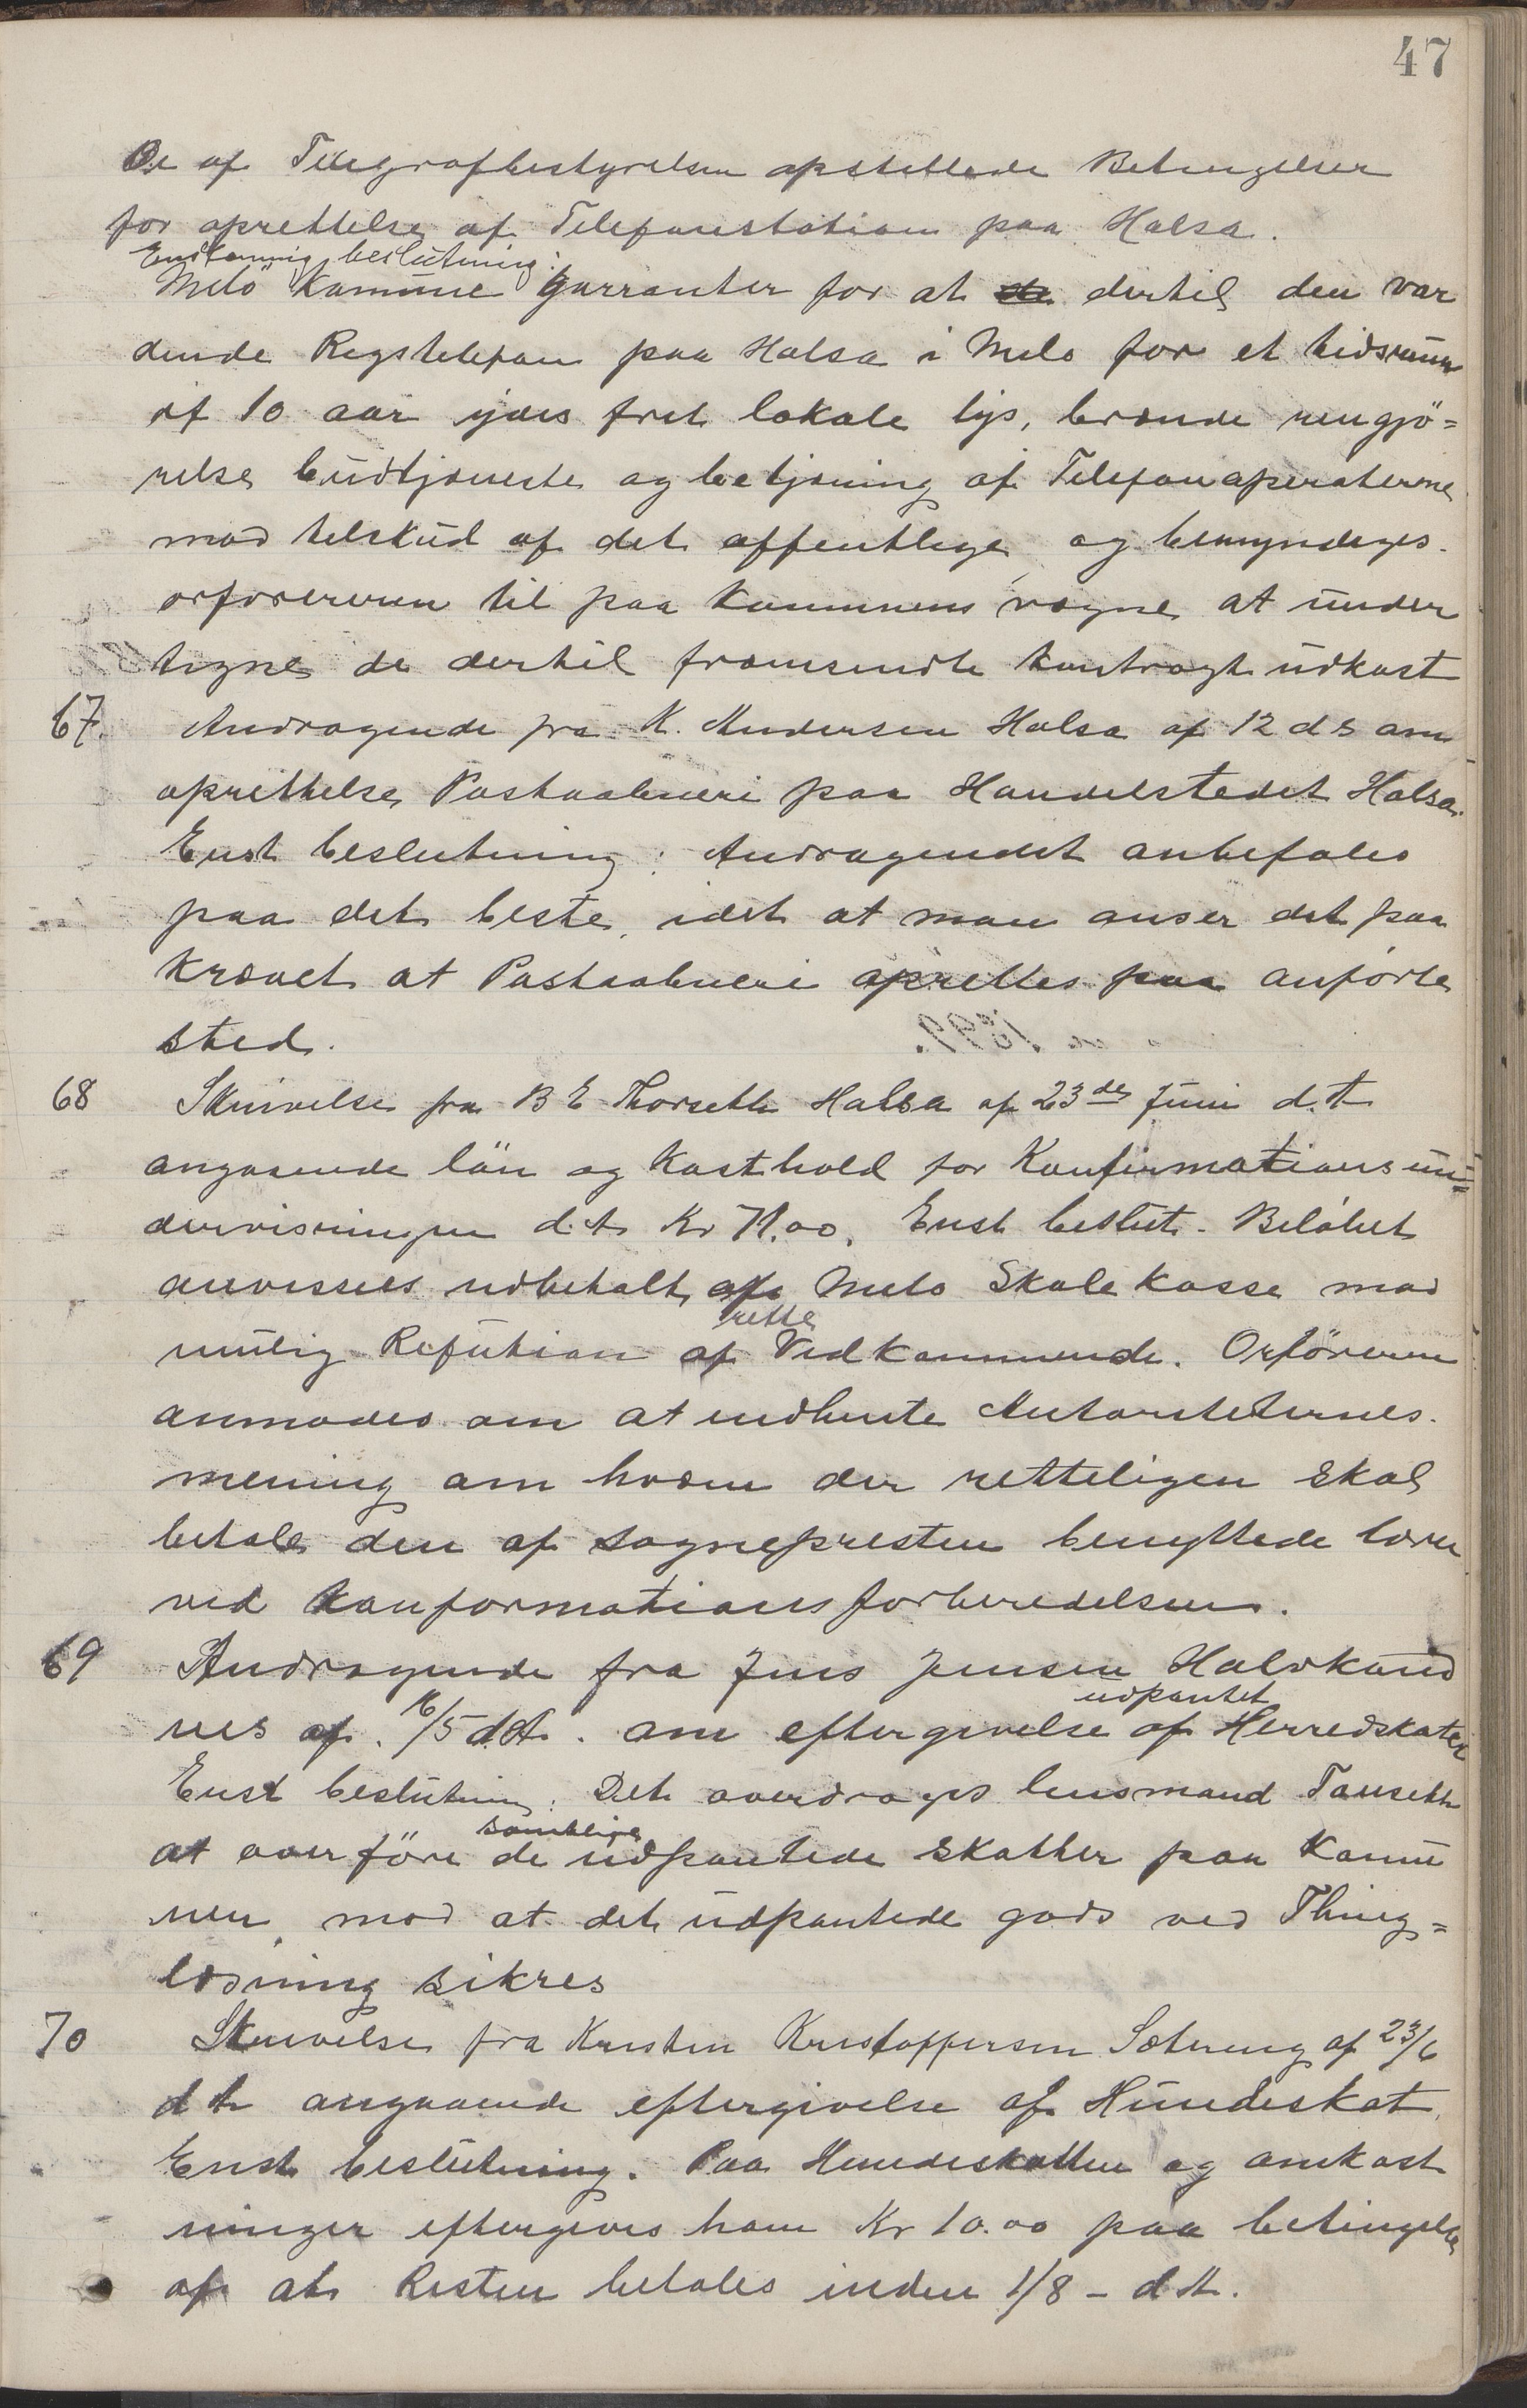 47
De af Telegrafbestyrelsen opstillede Betingelser
for oprettelse af Telefonstation paa Halsa.
Enstemmig beslutning:
Melö Kommune garranter for at dertil den vor
dende Rigstelefon paa Halsa i Melö for et tidsrum
af 10 aar ydes frit lokale lys, brænde rengjö=
relse budtjeneste og betjening af Telefonaperaterne
mod telskud af det offentlige og bemyndeges
orföreren til paa Kommunens vægne at under
tegne de dertil fræmsendte kontragt udkast
67. Andragende fra K. Andersen Halsa af 12 ds om
oprettelse Postaabneri paa Handelstedet Halsa.
Enst beslutning: Andragendet anbefales
paa det beste, idet at man anser det paa
krævet at Postaabneri oprettes paa anförte
sted.
68 Skrivelse fra B E Thorseth Halsa af 23de Juni d.A
angaaende lön og Kosthold for Konfirmationsun=
dervisningen d.A Kr 71.00. Enst beslut. Belöbet
anvisses udbetalt af Melö Skolekasse mod
rette
mulig Refution af Vedkommende. Orföreren
anmodes om at indhente Autoriteternes
mening om hvem der retteligen skal
betale den af sognepresten benyttede lærer
ved konformationsforberedelsen.
69 Andragende fra Jens Jensen Halvkand
udpantet
nes af 16/5 d.A. om eftergivelse af Herredskater
Enst beslutning: Det overdrages lensmand Tanseth
samtlige
at overföre de udpantede skatter paa Kommu
nen, mod at det udpantede gods ved Thing=
læsning sikres
70 Skrivelse fra Kristen Kristoffersen Sætreng af 23/6
d A angaaende eftergivelse af Hundeskat
Enst beslutning. Paa Hundeskatten og omkost
ninger eftergives ham Kr 10.00 paa betingelse
af at Resten betales inden 1/8 - d A.